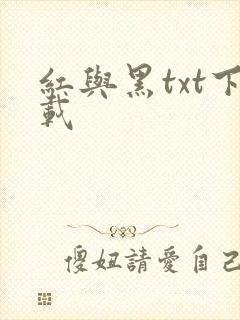 紅與黑txt下
載
傻妞請愛自己